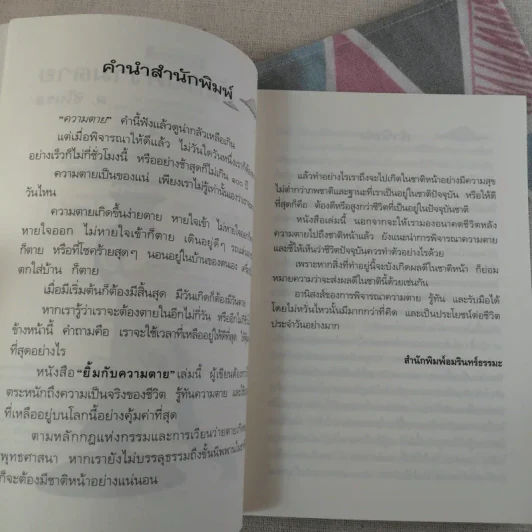 คำนำสำนักพิมพ์
"ความตาย" คำนี้ฟังแล้วดูน่ากลัวเหลือเกิน
แต่เมื่อพิจารณาให้ดีแล้ว ไม่วันใดวันหนึ่งเราก็ต้อง
อย่างเร็วก็ไม่กี่ชั่วโมงนี้ หรืออย่างช้าสุดก็ไม่เกิน ๑๐๐ ปี
ความตายเป็นของแน่ เพียงเราไม่รู้เท่านั้นเองว่า
วันไหน
ความตายเกิดขึ้นง่ายดาย หายใจเข้า ไม่หายใจออกก็
หายใจออก ไม่หายใจเข้าก็ตาย เดินอยู่ดีๆ
ก็ตาย หรือที่โชคร้ายสุดๆ นอนอยู่ในบ้านของตนเอง
ตกใส่บ้าน ก็ตาย
เมื่อมีเริ่มต้นก็ต้องมีสิ้นสุด มีวันเกิดก็ต้องมีวันตาย
หากเรารู้ว่าเราจะต้องตายในอีกไม่กี่วัน หรืออีกไม่กี่
ข้างหน้านี้ คำถามคือ เราจะใช้เวลาที่เหลืออยู่ให้ดีที่สุด
ที่สุดอย่างไร
หนังสือ "ยิ้มกับความตาย" เล่มนี้ ผู้เขียนต้องการ
ตระหนักถึงความเป็นจริงของชีวิต รู้ทันความตาย และใช้
ที่เหลืออยู่บนโลกนี้อย่างคุ้มค่าที่สุด
ตามหลักกฎแห่งกรรมและการเวียนว่ายตายเกิด
พุทธศาสนา หากเรายังไม่บรรลุธรรมถึงขั้นนิพพาน
ก็จะต้องมีชาติหน้าอย่างแน่นอน
แล้วทำอย่างไรเราถึงจะไปเกิดในชาติหน้าอย่างมีความสุข
ไม่ต่ำกว่าภพชาติและฐานะที่เราเป็นอยู่ในชาติปัจจุบัน หรือให้ดี
ที่สุดก็คือ ต้องดีหรือสูงกว่าชีวิตที่เป็นอยู่ในปัจจุบันชาติ
หนังสือเล่มนี้ นอกจากจะให้เรามองอนาคตชีวิตหลัง
ความตายไปถึงชาติหน้าแล้ว ยังแนะนำการพิจารณาความตาย
และชี้ให้เห็นว่าชีวิตปัจจุบันควรทำตัวอย่างไรด้วย
เพราะหากสิ่งที่ทำอยู่นี้จะบังเกิดผลดีในชาติหน้า ก็ย่อม
หมายความว่าจะส่งผลดีในชาตินี้ด้วยเช่นกัน
อานิสงส์ของการพิจารณาความตาย รู้ทัน และรับมือได้
โดยไม่หวั่นไหวนั้นมีมากกว่าที่คิด และเป็นประโยชน์ต่อชีวิต
ประจำวันอย่างมาก
สำนักพิมพ์อมรินทร์ธรรมะ